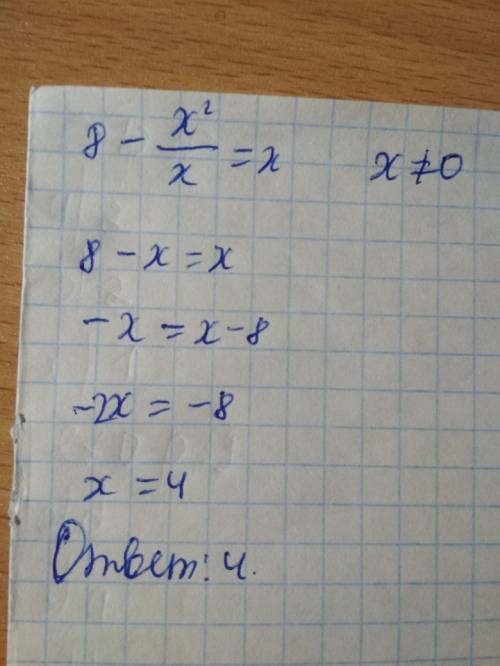 8 - x²/x = x    x ≠ 0
8 - x = x
-x = x - 8
-2x = -8
x = 4
Ответ: 4.